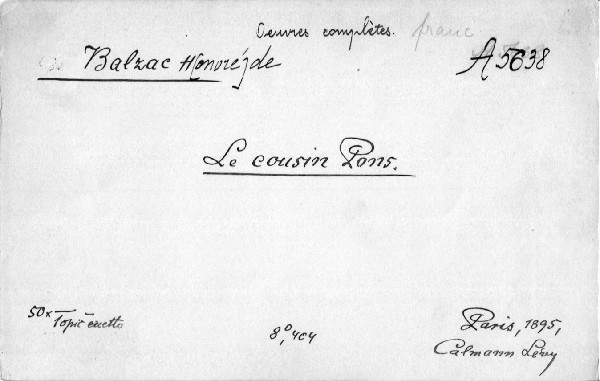 Oeuvres complètes. franc
Balzac H(onoré) de A 5638
Le cousin Pons.
50x Topič cuetto
8°, 404
Paris, 1895,
Calmann Lévy